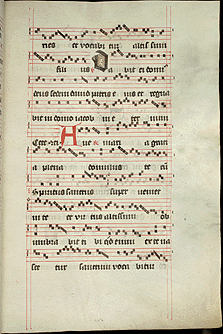 ries et vocabi tur altis simi
fili us D a bit ei domi
deus sedem david patris e ius et regna
bit in domo iacob in e ter num
A ve mari a grati
a plena dominus te cu
Spiritus sanctus super veniet
in te et vir tus altissimi ob
umbra bit ti bi quod enim ex te na
sce tur sanctum voca bitur